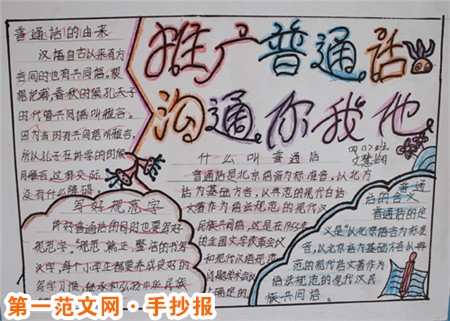 推广普通话
沟通你我他
普通话的由来
汉语自古以来有方
言同时也有共同语。根
据记载,春秋时候,孔夫子
时代管共同语叫雅言。
因为当时有共同语叫雅言,
所以孔子在讲学的时候
用雅言,这样交际
没有什么障碍。
写好规范字
说好普通话的同时也要写好
规范字。"规范、端正、整洁的书写
汉字,每个小学生都要养成良好的
什么叫普通话
普通话是北京语音为标准音,以北方
话为基础方言,以典范的现代白话
文著作为语法规范的现代汉
民族共同语,这是在
普通
话的含义
普通话的是
义:"以北京语音为标准
音,以北方话为基础方言,以典
范的现代白话文著作为
语法规范的现代汉民
族共同语。
第一范文网·手抄报